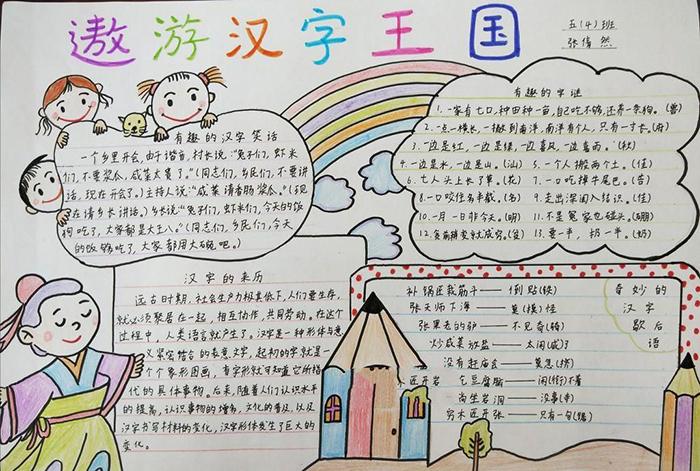 遨游汉字王国
五(4)班
张倩然
有趣的汉字笑话
一个乡里开会,由于谐音,村长说:“兔子们,虾米
们,不要浆瓜,咸菜太贵了。”(同志们,乡民们,不要讲
话,现在开会了。)主持人说:“咸菜请香肠浆瓜。”(现
在请乡长讲话。)乡长说:“兔子们,虾米们,今天的饭
狗吃了,大家都是大王八。”(同志们,乡民们,今天
的饭够吃了,大家都用大碗吧。)
有趣的字谜
1.一家有七口,种田种一亩,自己吃不够,还养一条狗。(兽)
2.一点一横长,一撇到南洋,南洋有个人,只有一寸长。(府)
3.一边是红,一边是绿,一边喜风,一边喜雨。(秋)
4.一边是水,一边是山。(汕)
5.一个人搬两个土。(佳)
6.七人头上长了草。(花)
7.一口吃掉牛尾巴。(告)
8.一口咬住多半截。(名)
9.走出深闺人结识。(佳)
10.一月一日非今天。(明)
11.不是冤家也碰头。(硼)
13.要一半,扔一半。(奶)
汉字的来历
远古时期,社会生产力极其低下,人们要生存,
就必须聚居在一起,相互协作,共同劳动。在这个
过程中,人类语言就产生了。汉字是一种形体与意
义紧密结合的表意文字,起初的字就是一
个个象形图画,看字形就可知道它所指
代的具体事物。后来,随着人们认识水平
的提高,认识事物的增多,文化的普及,以及
汉字书写材料的变化,汉字形体发生了巨大的
变化。
奇妙的
汉字
歇后
语
补锅匠栽筋斗——倒贴(铁)
张天师下海——莫(摸)怪
张果老的驴——不见奇(骑)
炒咸菜放盐——太闲(咸)了
没有赶庙会——莫怠(挤)
木匠开岩 豆腐脑——闲(衔)不着
尚坐岩洞——没事(寺)
穷木匠开张——只有一句(锯)